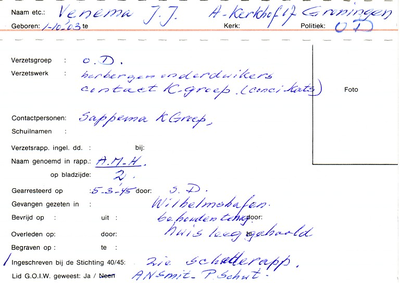 Naam etc.: Venema J.J. A-Kerkhof 17 Groningen
Geboren: 1-10-'03 te Kerk: Politiek: O D
Verzetsgroep : O.D.
Verzetswerk : herbergen onderduikers
contact K-groep.
Foto
Contactpersonen: Sappema K Groep,
Schuilnamen :
Verzetsrapp. ingel. dd. : bij:
Naam genoemd in rapp.: A.M.H.
op bladzijde: 2.
Gearresteerd op :5-3-'45 door: S.D.
Gevangen gezeten in : Wilhelmshafen.
Bevrijd op : uit : behouden door:
Overleden op: door: huis leeggehaald
Begraven op : te :
Ingeschreven bij de Stichting 40/45: zie rapp.
Lid G.O.I.W. geweest: Ja / Neen